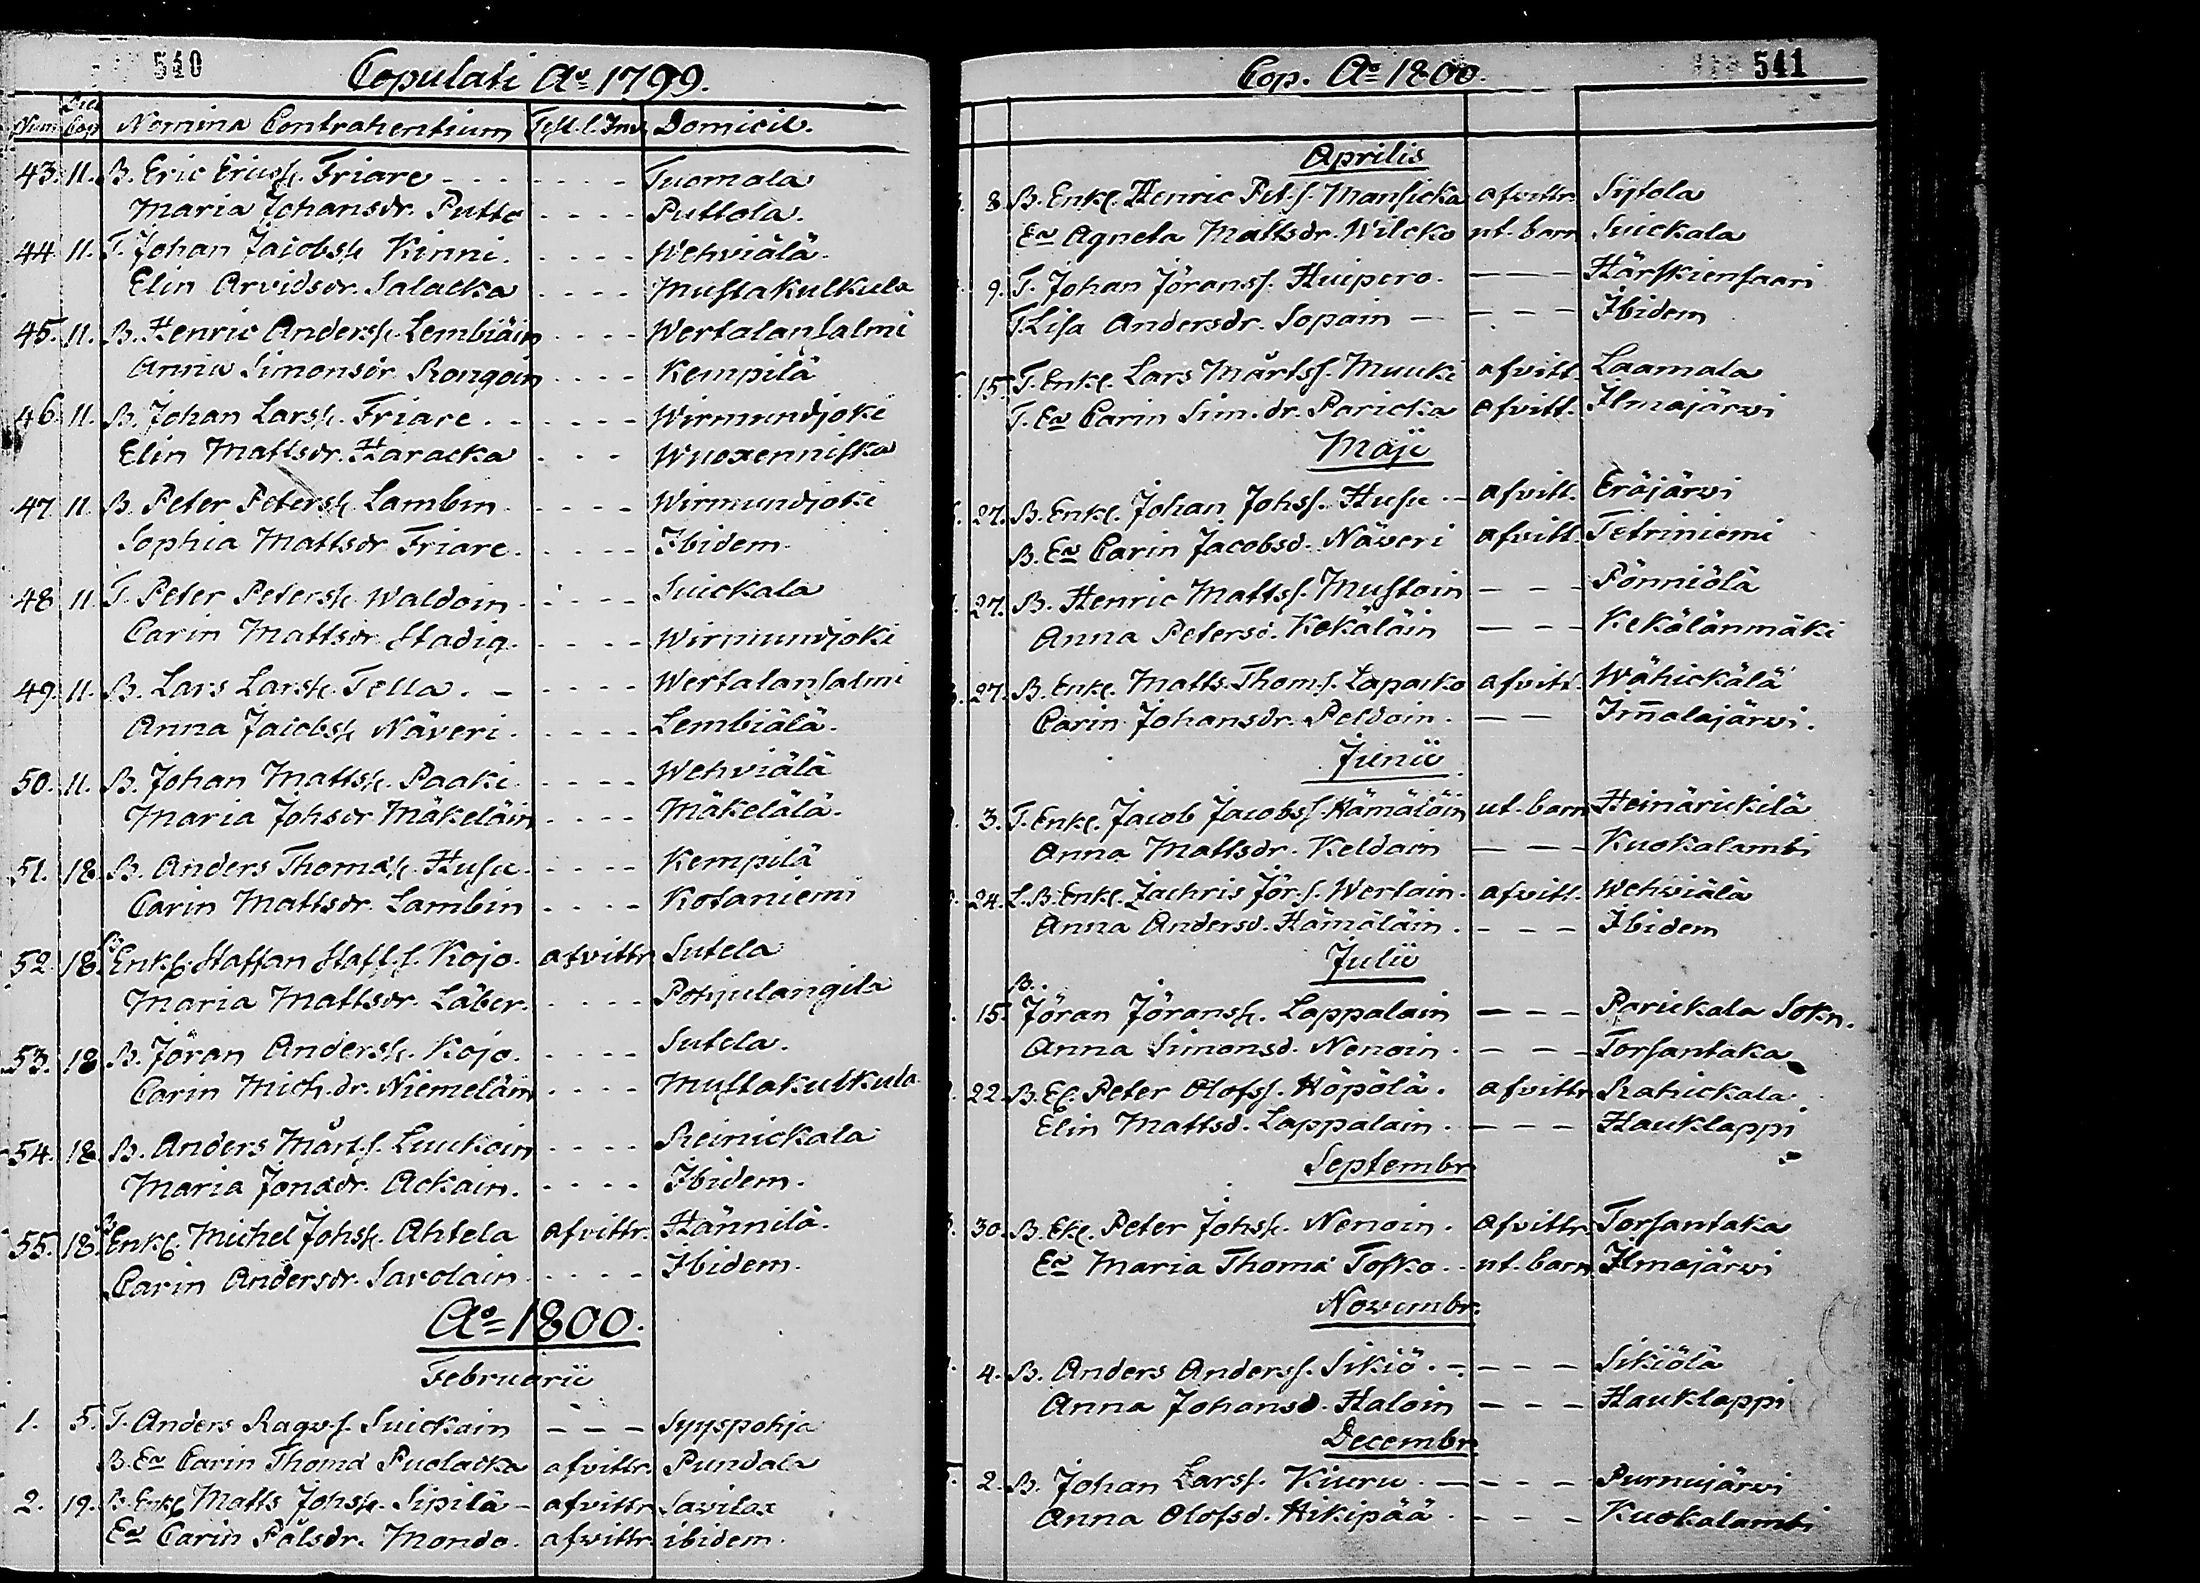 540
Copulati Aº 1799.
Num Die Cop Nomina Contrahentium Test. l. Inv. Domicil.
43. 11. B. Eric Ericss. Friare - - - - - - - Tuomala
Maria Johansdr. Putto - - - - Puttola.
44 11. T. Johan Jacobss. Kinni. - - - - Wehviälä.
Elin Arvidsdr. Salacka - - - - Mustakulkula
45. 11. B. Henric Anderss. Lembiäin - - - - Wertalansalmi
Anna Simonsdr. Rongain - - - - Kempilä
46. 11. B. Johan Larss. Friare. - - - - - - Wirmundjoki
Elin Mattsdr. Haracka - - - Wuoxenniska
47. 11. B. Peter Peterss. Lambin - - - - Wirmundjoki
Sophia Mattsdr. Friare. - - - - Ibidem.
48 11 T. Peter Peterss. Waldoin - - - - Suickala
Carin Mattsdr. Stadig. - - - - Wirmundjoki
49. 11. B. Lars Larss. Tella. - - - - - Wertalansalmi
Anna Jacobss. Näveri. - - - - Lembiälä.
50. 11. B. Johan Mattss. Paaki - - - - Wehviälä
Maria Johsdr Mäkeläin - - - - Mäkelälä.
51. 18. B. Anders Thomass. Husu - - - - Kempilä
Carin Mattsdr. Lambin - - - - Kotaniemi
52. 18. B. Enkl. Staffan Staff. s. Kojo. afvittr Sutela
Maria Mattsdr. Läber. - - - - Pohjulangila
53. 18 B. Jöran Anderss. Kojo. - - - - Sutela.
Carin Mich. dr. Niemeläin - - - - Mustakulkula
54. 18. B. Anders Mårt. s. Luukoin - - - - Reinickala
Maria Jonædr. Ackain. - - - - Ibidem.
55. 18. B. Enkl. Michel Johss. Ahtela afvittr. Hännilä.
Carin Andersdr. Savolain - - - - Ibidem.
Aº 1800.
Februarii
1. 5. T. Anders Ragv. s. Suickain - - - Syyspohja
B. Ea Carin Thomæ Puolacka afvittr. Pundala
2. 19. B. Enkl Matts Johss. Sipilä - afvittr Savilax
Ea Carin Pålsdr. Mondo. afvittr. ibidem.
541
Cop. Aº 1800.
Aprilis
8. B. Enkl. Henric Pet. s. Mansicka afvittr. Sijtola
Ea Agneta Mattsdr. Wilcko ut. barn Suickala
9. T. Johan Jöranss. Huipero. - - - Härskiensaari
T. Lisa Andersdr. Sopain - - - - Ibidem
15. T. Enkl. Lars Mårtss. Muuki afvitt. Laamala
T. Ea Carin Sim. dr. Paricka afvitt. Ilmajärwi
Maji
27. B. Enkl. Johan Johss. Husu - afvitt. Eräjärwi
B. Ea Carin Jacobsd. Näveri afvitt. Tetriniemi
27. B. Henric Mattss. Mustoin - - - Pönniölä
Anna Petersd. Kekäläin - - - Kekälänmäki
27. B. Enkl. Matts Thom. s. Lapacko afvitt. Wähickälä
Carin Johansdr. Peldoin. - - Im̄alajärwi.
Junii
3. T. Enkl. Jacob Jacobss. Hämäläin ut. barn Heinärickilä
Anna Mattsdr. Keldain - - - Kuokalambi
24. L. B. Enkl. Zachris Jör. s. Wertain. afvitt. Wehviälä
Anna Andersd. Hämäläin. - - - Ibidem
Julii
B.
15. Jöran Jöranss. Lappalain - - - Parickala Sokn.
Anna Simonsd. Nenoin. - - - Torsantaka
22. B. El. Peter Olofss. Höpölä. afvittr Rahickala
Elin Mattsd. Lappalain. - - - Hauklappi
Septembr.
30. B. Ekl. Peter Johss. Nenoin. afvittr. Torsantaka
Ea Maria Thomæ Tosko. ut. barn Ilmajärwi
Novembr.
4. B. Anders Anderss. Sikiö. - - - - Sikiölä
Anna Johansd. Haloin - - - Hauklappi
Decembr.
2. B. Johan Larss. Kiuru. - - - - Purnujärwi
Anna Olofsd. Hikipää. - - - Kuokalambi